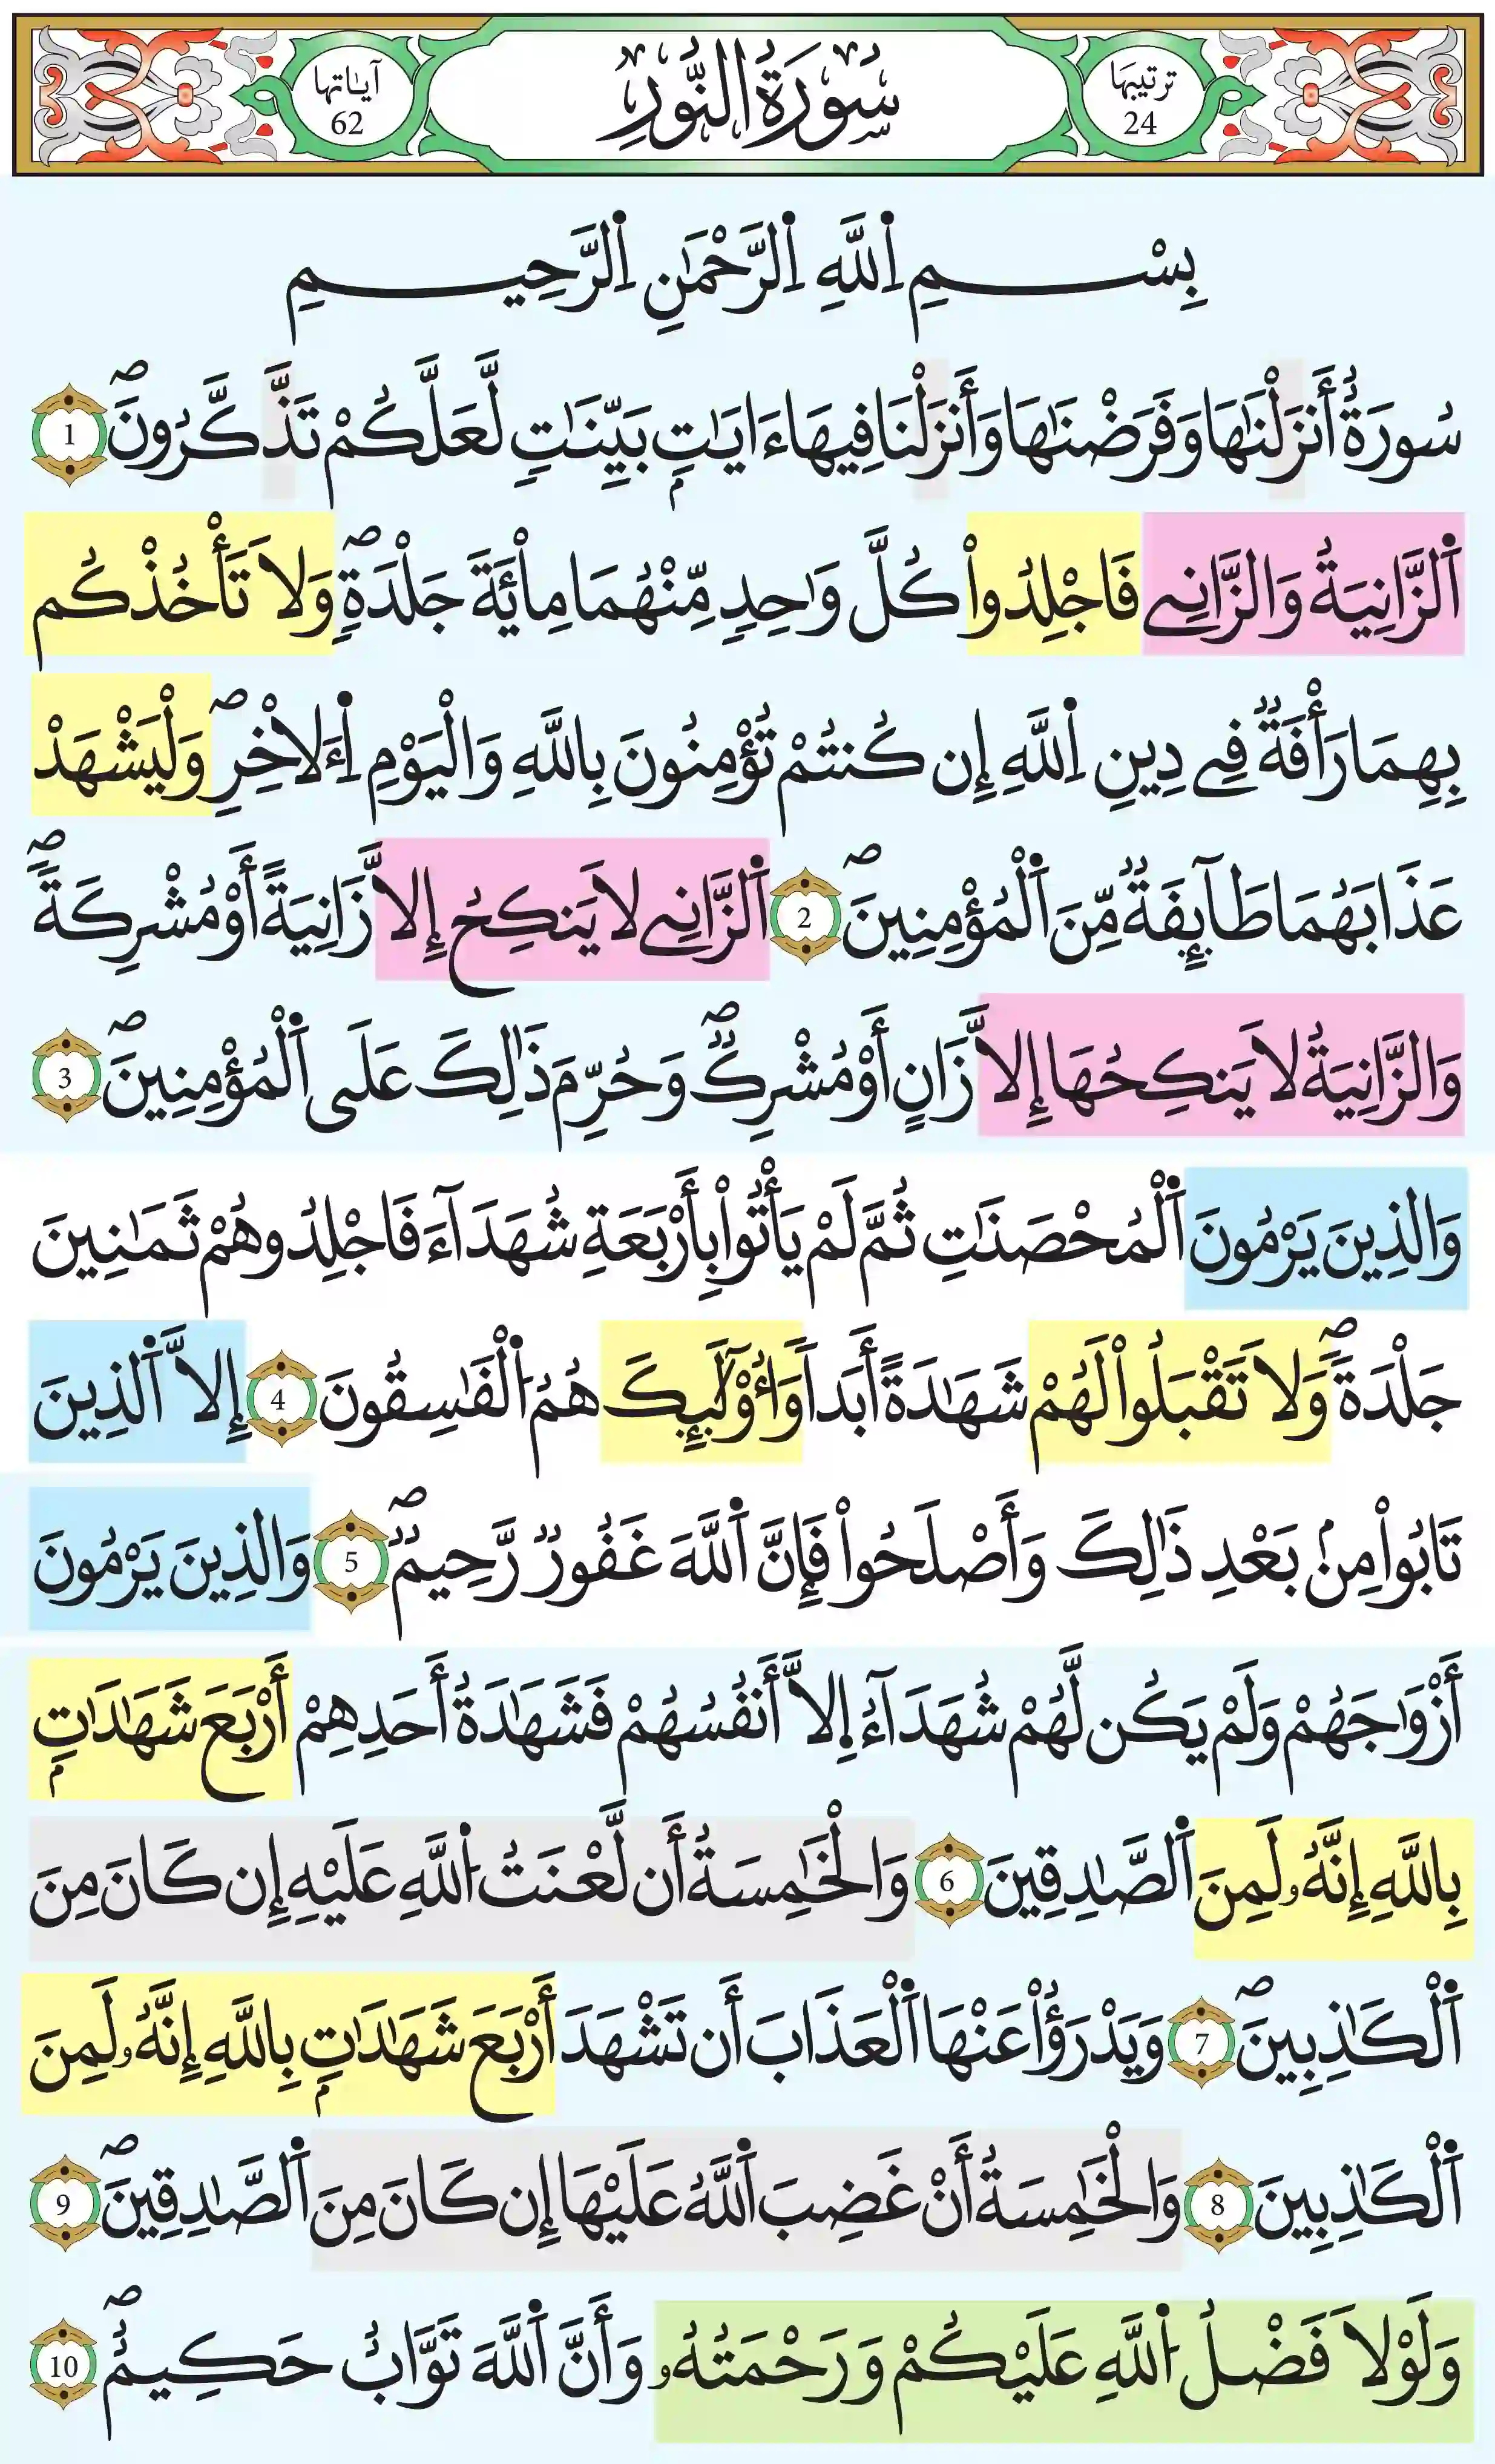 ترتيبها
24
سُورَةُ النُّورِ
آياتها
62
بِسْمِ اِ۬للَّهِ اِ۬لرَّحْمَٰنِ اِ۬لرَّحِيمِ
سُورَةٌ أَنزَلْنَٰهَا وَفَرَضْنَٰهَا وَأَنزَلْنَا فِيهَا ءَايَٰتِۢ بَيِّنَٰتٖ لَّعَلَّكُمْ تَذَّكَّرُونَۖ 1
اَ۬لزَّانِيَةُ وَالزَّانِے فَاجْلِدُواْ كُلَّ وَٰحِدٖ مِّنْهُمَا مِاْئَةَ جَلْدَةٖۖ وَلَا تَأْخُذْكُم
بِهِمَا رَأْفَةٞ فِے دِينِ اِ۬للَّهِ إِن كُنتُمْ تُؤْمِنُونَ بِاللَّهِ وَالْيَوْمِ اِ۬ءَلَاخْرِۖ وَلْيَشْهَدْ
عَذَابَهُمَا طَآئِفَةٞ مِّنَ اَ۬لْمُؤْمِنِينَۖ 2 اَ۬لزَّانِے لَا يَنكِحُ إِلَّا زَانِيَةً أَوْ مُشْرِكَةٗۖ
وَالزَّانِيَةُ لَا يَنكِحُهَا إِلَّا زَانٍ أَوْ مُشْرِكٞۖ وَحُرِّمَ ذَٰلِكَ عَلَى اَ۬لْمُؤْمِنِينَۖ 3
وَالذِينَ يَرْمُونَ اَ۬لْمُحْصَنَٰتِ ثُمَّ لَمْ يَأْتُواْ بِأَرْبَعَةِ شُهَدَآءَ فَاجْلِدُوهُمْ ثَمَٰنِينَ
جَلْدَةٗۖ وَلَا تَقْبَلُواْ لَهُمْ شَهَٰدَةً أَبَداٗ وَأُوْلَٰٓئِكَ هُمُ اُ۬لْفَٰسِقُونَ 4 إِلَّا اَ۬لذِينَ
تَابُواْ مِنۢ بَعْدِ ذَٰلِكَ وَأَصْلَحُواْ فَإِنَّ اَ۬للَّهَ غَفُورٞ رَّحِيمٞۖ 5 وَالذِينَ يَرْمُونَ
أَزْوَٰجَهُمْ وَلَمْ يَكُن لَّهُمْ شُهَدَآءُ اِلَّا أَنفُسُهُمْ فَشَهَٰدَةُ أَحَدِهِمْ أَرْبَعَ شَهَٰدَٰتِۢ
بِاللَّهِ إِنَّهُۥ لَمِنَ اَ۬لصَّٰدِقِينَ 6 وَالْخَٰمِسَةُ أَن لَّعْنَتُ اُ۬للَّهِ عَلَيْهِ إِن كَانَ مِنَ
اَ۬لْكَٰذِبِينَۖ 7 وَيَدْرَؤُاْ عَنْهَا اَ۬لْعَذَابَ أَن تَشْهَدَ أَرْبَعَ شَهَٰدَٰتِۢ بِاللَّهِ إِنَّهُۥ لَمِنَ
اَ۬لْكَٰذِبِينَ 8 وَالْخَٰمِسَةُ أَنْ غَضِبَ اَ۬للَّهُ عَلَيْهَا إِن كَانَ مِنَ اَ۬لصَّٰدِقِينَۖ 9
وَلَوْلَا فَضْلُ اُ۬للَّهِ عَلَيْكُمْ وَرَحْمَتُهُۥ وَأَنَّ اَ۬للَّهَ تَوَّابٌ حَكِيمٌۖ 10